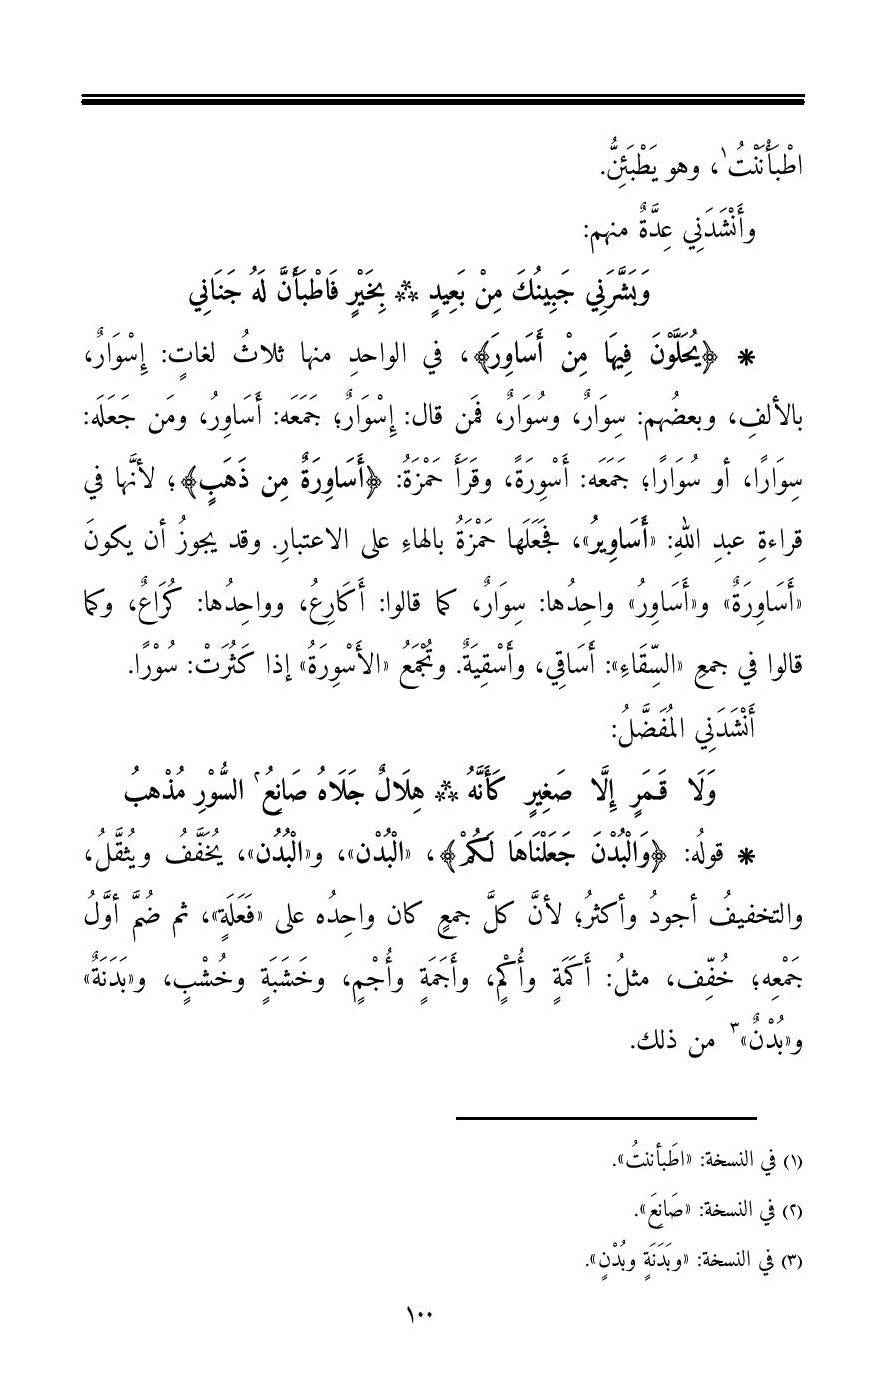 اطْبَأْنَنْتُ١، وهو يَطْبَئِنُّ.
وأَنْشَدَنِي عِدَّةٌ منهم:
وَبَشَّرَنِي جَبِينُكَ مِنْ بَعِيدٍ ** بِخَيْرٍ فَاطْبَأَنَّ لَهُ جَنَانِي
* ﴿يُحَلَّوْنَ فِيهَا مِنْ أَسَاوِرَ﴾، في الواحدِ منها ثلاثُ لغاتٍ: إِسْوَارٌ،
بالألفِ، وبعضُهم: سِوَارٌ، وسُوَارٌ، فمَن قال: إِسْوَارٌ؛ جَمَعَه: أَسَاوِرُ، ومَن جَعَلَه:
سِوَارًا، أو سُوَارًا؛ جَمَعَه: أَسْوِرَةً، وقَرَأَ حَمْزَةُ: ﴿أَسَاوِرَةٌ مِن ذَهَبٍ﴾؛ لأنَّها في
قراءةِ عبدِ اللهِ: «أَسَاوِيرُ»، فجَعَلَها حَمْزَةُ بالهاءِ على الاعتبارِ. وقد يجوزُ أن يكونَ
«أَسَاوِرَةٌ» و«أَسَاوِرُ» واحِدُها: سِوَارٌ، كما قالوا: أَكَارِعُ، وواحِدُها: كُرَاعٌ، وكما
قالوا في جمعِ «السِّقَاءِ»: أَسَاقِي، وأَسْقِيَةٌ. وتُجْمَعُ «الأَسْوِرَةُ» إذا كَثُرَتْ: سُوْرًا.
أَنْشَدَنِي المُفَضَّلُ:
وَلَا قَمَرٍ إِلَّا صَغِيرٍ كَأَنَّهُ ** هِلَالٌ جَلَاهُ صَانِعُ٢ السُّوْرِ مُذْهِبُ
* قولُه: ﴿وَالْبُدْنَ جَعَلْنَاهَا لَكُمْ﴾، «الْبُدْن»، و«الْبُدُن»، يُخَفَّفُ ويُثقَّلُ،
والتخفيفُ أجودُ وأكثرُ؛ لأنَّ كلَّ جمعٍ كان واحِدُه على «فَعَلَةٍ»، ثم ضُمَّ أوَّلُ
جَمْعِه؛ خُفِّف، مثلُ: أَكَمَةٍ وأُكْمٍ، وأَجَمَةٍ وأُجْمٍ، وخَشَبَةٍ وخُشْبٍ، و«بَدَنَةٌ»
و«بُدْنٌ»٣ من ذلك.
(١) في النسخة: «اطَبأننتُ».
(٢) في النسخة: «صَانِعَ».
(٣) في النسخة: «وبَدَنَةٍ وبُدْنٍ».
١٠٠